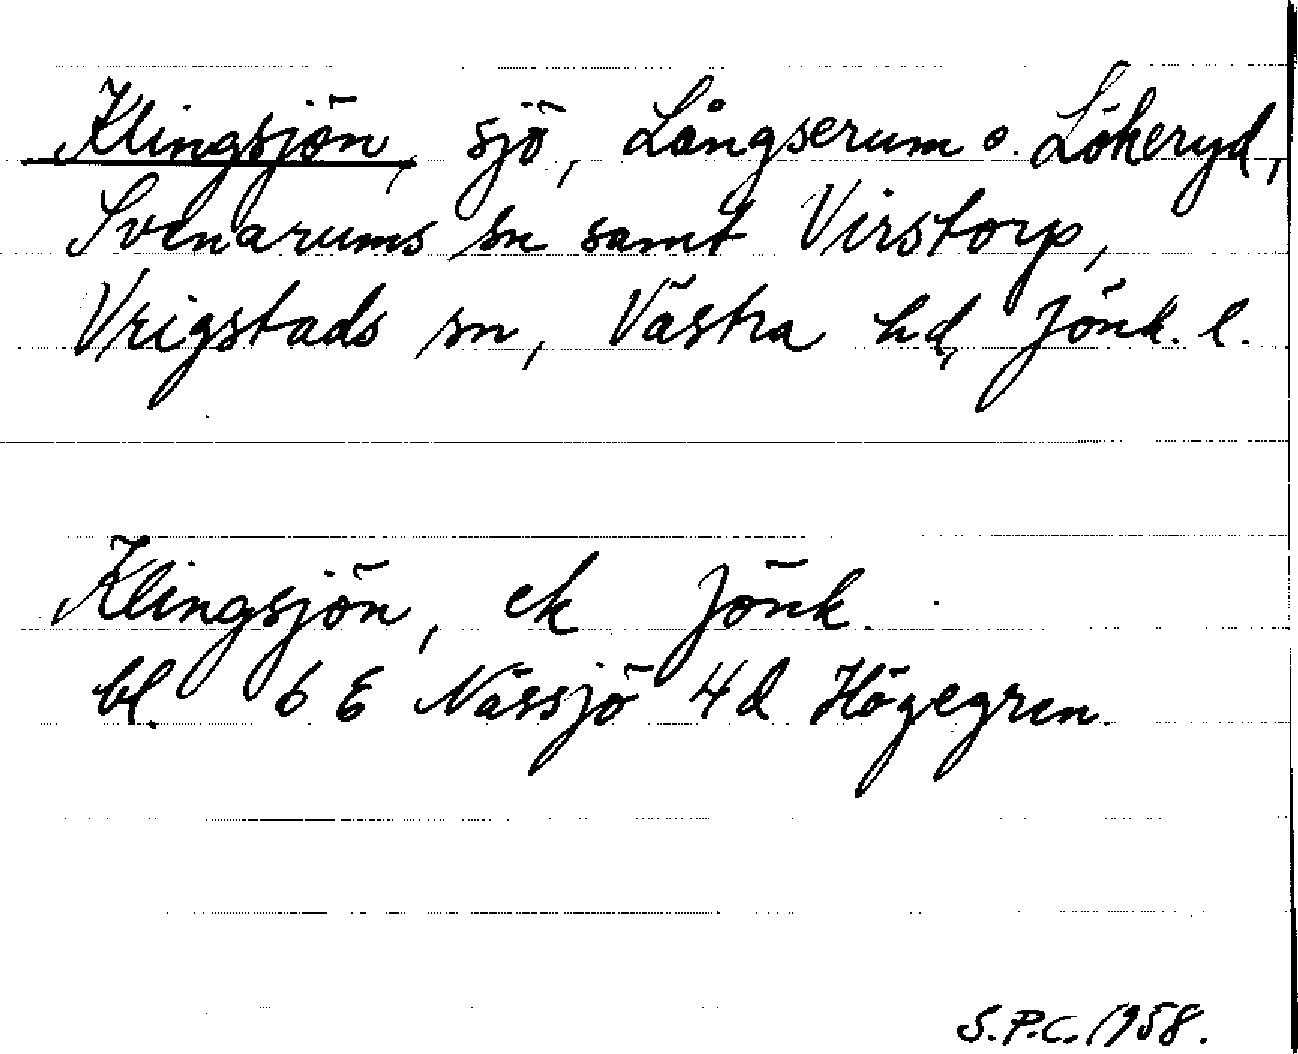 Klingsjön, sjö, Långserum o. Lökeryd,
Svenarums sn samt Virstorp,
Vrigstads sn, Västra hd, Jönk. l.
Klingsjön, ek Jönk.
bl. 6 E Nässjö 4d Högegren.
S.P.C. 1958.